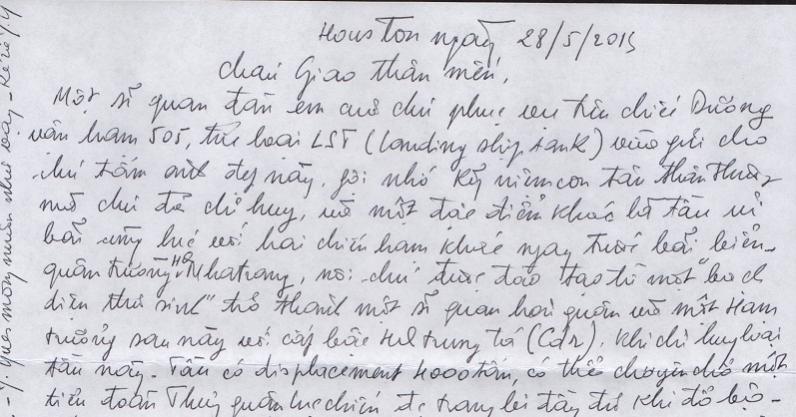 Houston ngày 28/5/2015
cháu Giao thân mến,
Một sĩ quan đàn em cũ chú phục vụ trên chiếc Dương
vận hạm 505, thuộc loại LST (landing ship tank) vừa gửi cho
chú tấm ảnh đẹp này, gợi nhớ kỷ niệm con tàu thân thương
mà chú đã chỉ huy, và một đặc điểm khác là tàu ủi
bãi cùng lúc với hai chiến hạm khác ngay trước bãi biển
quân trường HQ Nhatrang, nơi chú được đào tạo từ một "bạch
diện thư sinh" trở thành một sĩ quan hải quân và một Hạm
trưởng sau này với cấp bậc HQ trung tá (Cdr), khi chỉ huy loại
tàu này. Tàu có displacement 4000 tấn, có thể chuyên chở một
tiểu đoàn Thủy quân lục chiến để trang bị đầy đủ khi đổ bộ-